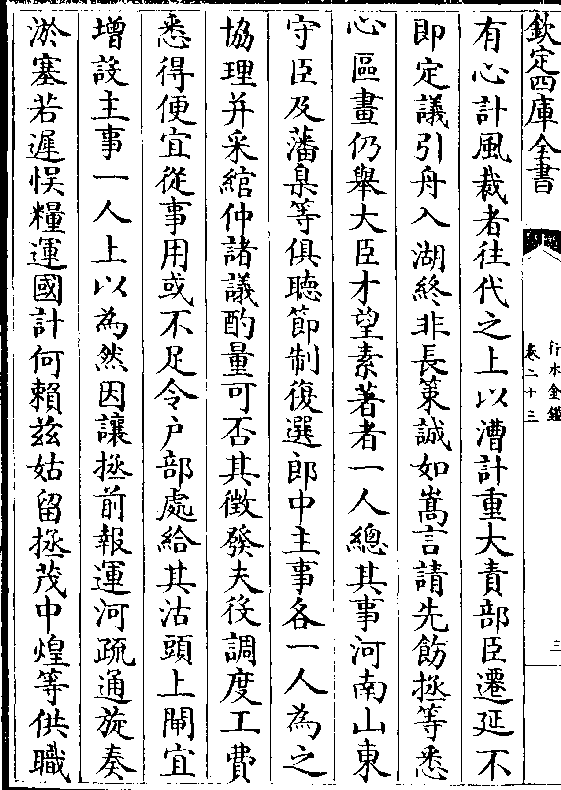 欽定四庫全書
行水金鑑
卷二十三
三
有心計風裁者往代之上以漕計重大責部臣遷延不
即定議引舟入湖終非長策誠如嵩言請先飭拯等悉
心區畫仍舉大臣才望素著者一人總其事河南山東
守臣及藩臬等俱聽節制復選郎中主事各一人為之
協理并采綰仲諸議酌量可否其徵發夫役調度工費
悉得便宜從事用或不足令户部處給其沽頭上閘宜
增設主事一人上以為然因讓拯前報運河疏通旋奏
淤塞若遲悮糧運國計何賴兹姑留拯茂中煌等供職